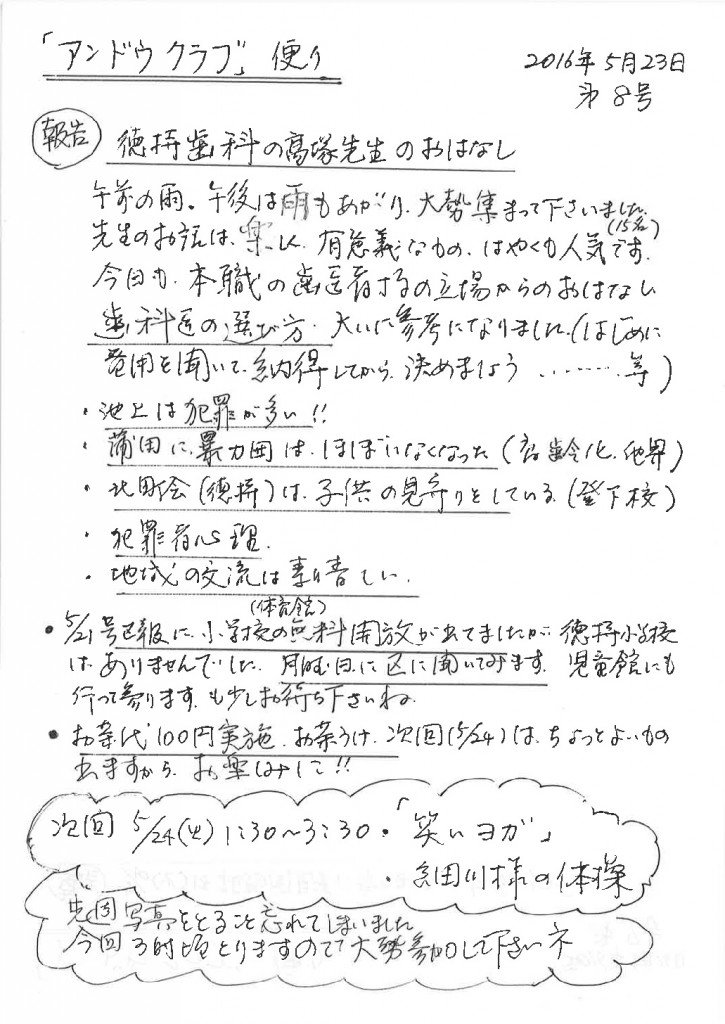 「アンドウクラブ」便り
2016年5月23日
第8号
報告 徳持歯科の高塚先生のおはなし
午前の雨。午後は雨もあがり、大勢集まって下さいました
(15名)
先生のお話は、楽しく、有意義なもの、はやくも人気です。
今日も、本職の歯医者の立場からのおはなし
歯科医の選び方。大いに参考になりました。(はじめに
費用を聞いて、納得してから、決めましょう ……… 等)
・池上は犯罪が多い!!
・蒲田に、暴力団は、ほぼいなくなった (高齢化、他界)
・北町会(徳持)は、子供の見守りをしている(登下校)
・犯罪者心理。
・地域の交流は素晴らしい。
(体育館)
● 5/21号区報に、小学校の無料開放が出てましたが 徳持小学校
はありませんでした。月曜日に区に聞いてみます。児童館にも
行って参ります。も少しお待ち下さいね。
● お茶代100円実施、お茶うけ、次回(5/24)は、ちょっとよいもの
出ますから、お楽しみに!!
次回 5/24(火) 1:30~3:30・「笑いヨガ」
・田川様の体操
先回写真をとること忘れてしまいました
今回3時頃とりますので大勢参加して下さいネ